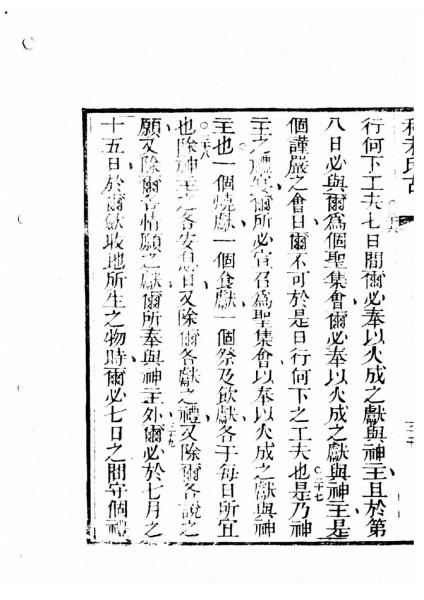 行何下工夫七日間爾必奉以火成之獻與神主且於第
八日必與爾爲個聖集會爾必奉以火成之獻與神主是
個謹嚴之會日爾不可於是日行何下之工夫也○三十七是乃神
主之禮筵爾所必宣召爲聖集會以奉以火成之獻與神
主也一個燒獻一個食獻一個祭及飲獻各于每日所宜
也○三八除神主之各安息日又除爾各獻之禮又除爾各說之
願又除爾各情願之獻爾所奉與神主外○三十九爾必於七月之
十五日於爾歛收地所生之物時爾必七日之間守個禮